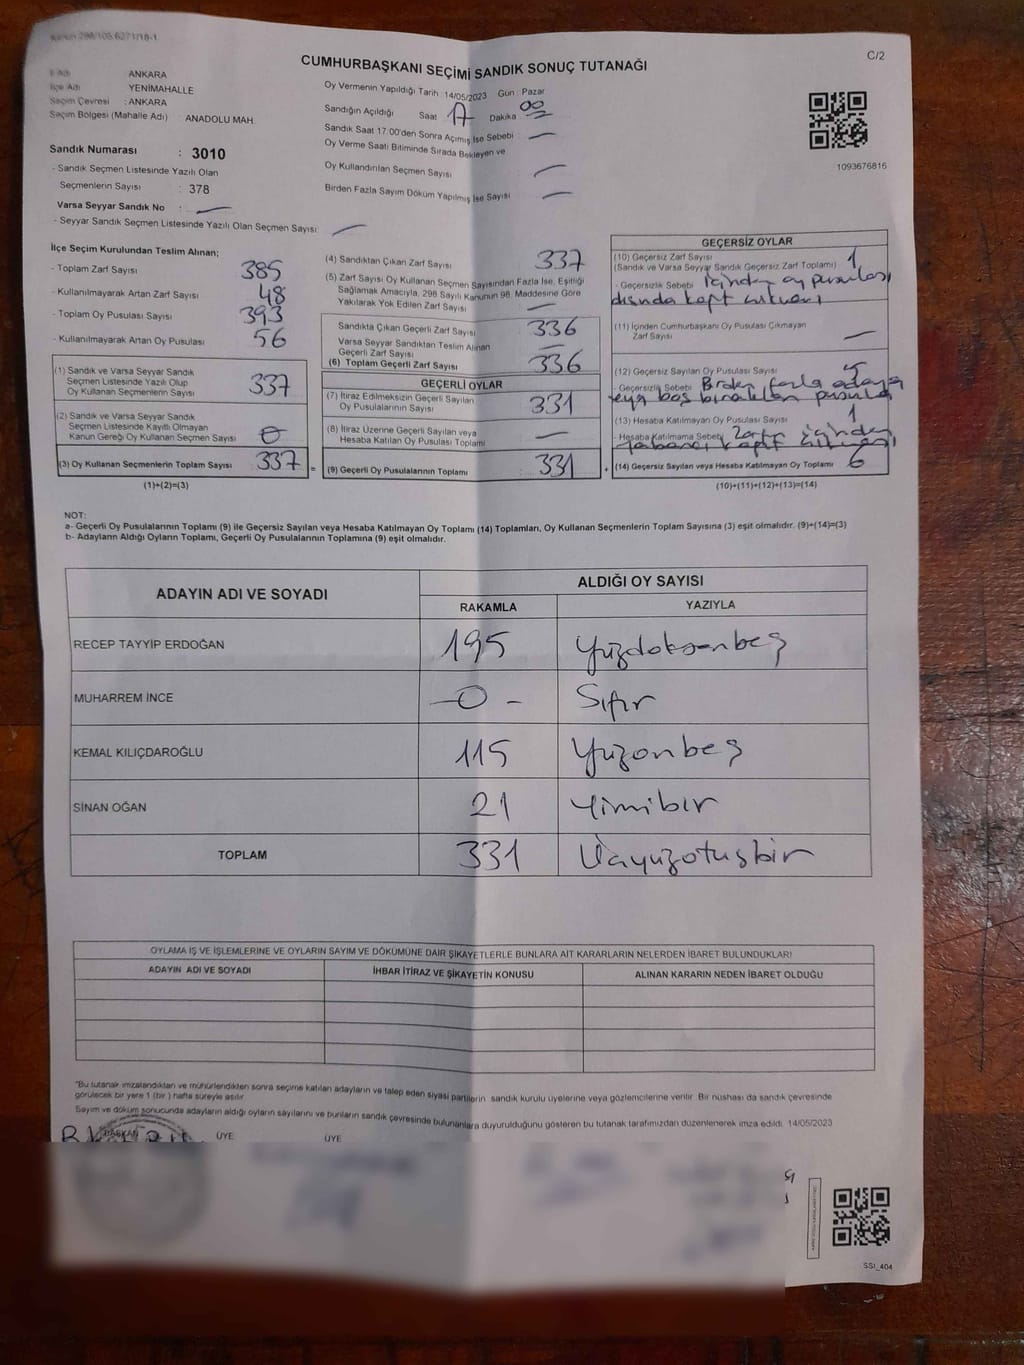 Kanun 298/105.6271/18-1
C/2
CUMHURBAŞKANI SEÇİMİ SANDIK SONUÇ TUTANAĞI
İl Adı ANKARA
İlçe Adı YENİMAHALLE
Seçim Çevresi : ANKARA
Seçim Bölgesi (Mahalle Adı) : ANADOLU MAH.
Sandık Numarası : 3010
- Sandık Seçmen Listesinde Yazılı Olan
Seçmenlerin Sayısı : 378
Varsa Seyyar Sandık No : —
- Seyyar Sandık Seçmen Listesinde Yazılı Olan Seçmen Sayısı: —
Oy Vermenin Yapıldığı Tarih 14/05/2023 Gün : Pazar
Sandığın Açıldığı Saat 17 Dakika 00
Sandık Saat 17:00'den Sonra Açımış İse Sebebi —
Oy Verme Saati Bitiminde Sırada Bekleyen ve
Oy Kullandırılan Seçmen Sayısı —
Birden Fazla Sayım Döküm Yapılmış İse Sayısı —
1093676816
İlçe Seçim Kurulundan Teslim Alınan;
- Toplam Zarf Sayısı 385
- Kullanılmayarak Artan Zarf Sayısı 48
- Toplam Oy Pusulası Sayısı 393
- Kullanılmayarak Artan Oy Pusulası 56
(1) Sandık ve Varsa Seyyar Sandık
Seçmen Listesinde Yazılı Olup
Oy Kullanan Seçmenlerin Sayısı 337
(2) Sandık ve Varsa Seyyar Sandık
Seçmen Listesinde Kayıtlı Olmayan
Kanun Gereği Oy Kullanan Seçmen Sayısı 0
(3) Oy Kullanan Seçmenlerin Toplam Sayısı 337 =
(1)+(2)=(3)
(4) Sandıktan Çıkan Zarf Sayısı 337
(5) Zarf Sayısı Oy Kullanan Seçmen Sayısından Fazla İse, Eşitliği
Sağlamak Amacıyla, 298 Sayılı Kanunun 98. Maddesine Göre
Yakılarak Yok Edilen Zarf Sayısı —
Sandıkta Çıkan Geçerli Zarf Sayısı 336
Varsa Seyyar Sandıktan Teslim Alınan
Geçerli Zarf Sayısı —
(6) Toplam Geçerli Zarf Sayısı 336
GEÇERLİ OYLAR
(7) İtiraz Edilmeksizin Geçerli Sayılan
Oy Pusulalarının Sayısı 331
(8) İtiraz Üzerine Geçerli Sayılan veya
Hesaba Katılan Oy Pusulası Toplamı —
(9) Geçerli Oy Pusulalarının Toplamı 331 +
GEÇERSİZ OYLAR
(10) Geçersiz Zarf Sayısı 1
(Sandık ve Varsa Seyyar Sandık Geçersiz Zarf Toplamı)
- Geçersizlik Sebebi İçinden oy pusulası
dışında kağıt çıkması
(11) İçinden Cumhurbaşkanı Oy Pusulası Çıkmayan
Zarf Sayısı —
(12) Geçersiz Sayılan Oy Pusulası Sayısı 5
- Geçersizlik Sebebi Birden fazla adaya
veya boş bırakılan pusula
(13) Hesaba Katılmayan Oy Pusulası Sayısı 1
- Hesaba Katılmama Sebebi Zarfın içinden
yabancı kağıt çıkması
(14) Geçersiz Sayılan veya Hesaba Katılmayan Oy Toplamı 6
(10)+(11)+(12)+(13)=(14)
NOT:
a- Geçerli Oy Pusulalarının Toplamı (9) ile Geçersiz Sayılan veya Hesaba Katılmayan Oy Toplamı (14) Toplamları, Oy Kullanan Seçmenlerin Toplam Sayısına (3) eşit olmalıdır. (9)+(14)=(3)
b- Adayların Aldığı Oyların Toplamı, Geçerli Oy Pusulalarının Toplamına (9) eşit olmalıdır.
ADAYIN ADI VE SOYADI ALDIĞI OY SAYISI
RAKAMLA YAZIYLA
RECEP TAYYİP ERDOĞAN 195 Yüzdoksanbeş
MUHARREM İNCE — 0 - Sıfır
KEMAL KILIÇDAROĞLU 115 Yüzonbeş
SİNAN OĞAN 21 Yirmibir
TOPLAM 331 Üçyüzotuzbir
OYLAMA İŞ VE İŞLEMLERİNE VE OYLARIN SAYIM VE DÖKÜMÜNE DAİR ŞİKAYETLERLE BUNLARA AİT KARARLARIN NELERDEN İBARET BULUNDUKLARI
ADAYIN ADI VE SOYADI İHBAR İTİRAZ VE ŞİKAYETİN KONUSU ALINAN KARARIN NEDEN İBARET OLDUĞU
"Bu tutanak imzalandıktan ve mühürlendikten sonra seçime katılan adayların ve talep eden siyasi partilerin sandık kurulu üyelerine veya gözlemcilerine verilir. Bir nüshası da sandık çevresinde
görülecek bir yere 1 (bir) hafta süreyle asılır
Sayım ve döküm sonucunda adayların aldığı oyların sayılarını ve bunların sandık çevresinde bulunanlara duyurulduğunu gösteren bu tutanak tarafımızdan düzenlenerek imza edildi. 14/05/2023
BAŞKAN ÜYE ÜYE
SSI_404